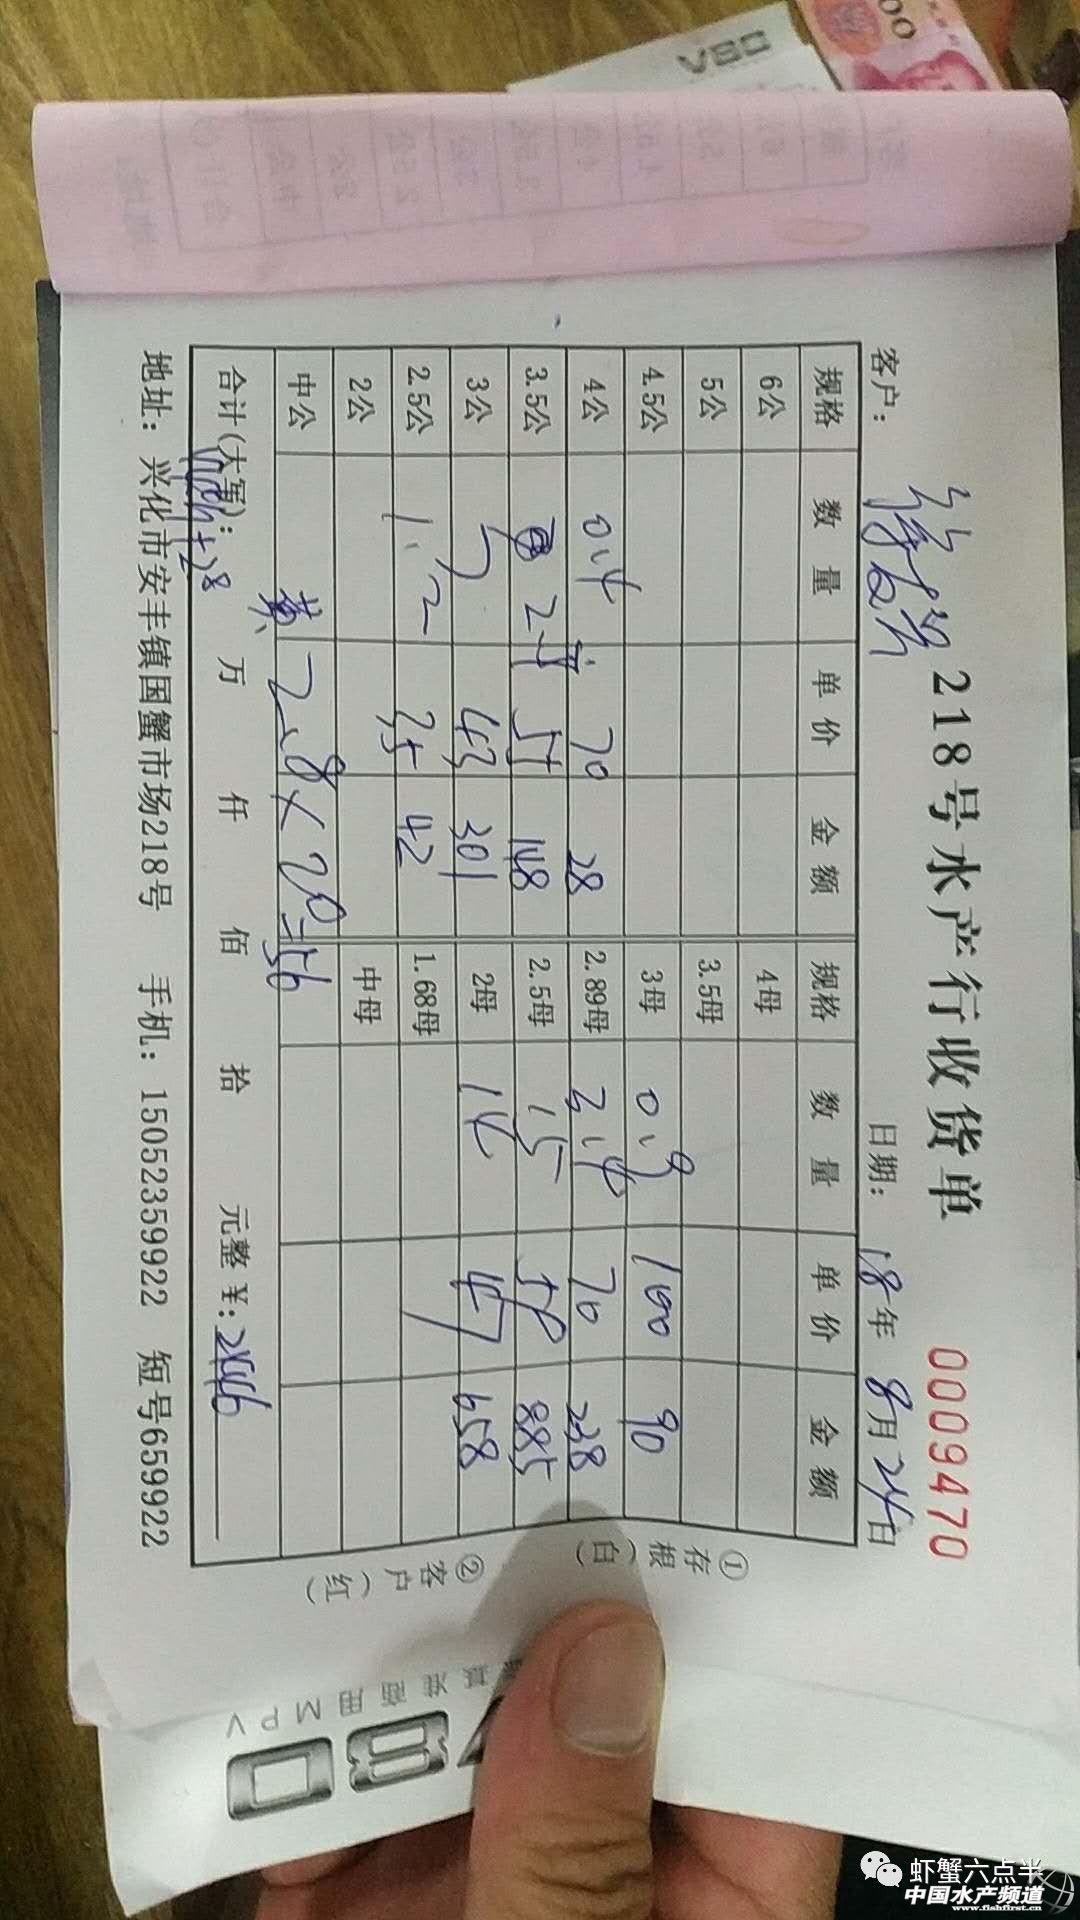 218号水产行收货单
0009470
客户：
日期：18年8月24日
规格 数量 单价 金额 规格 数量 单价 金额
6公 4母
5公 3.5母
4.5公 3母 0.9 100 90
4公 0.4 70 28 2.89母 3.4 70 238
3.5公 2.7 55 148 2.5母 15 59 885
3公 7 43 301 2母 14 47 658
2.5公 1.2 35 42 1.68母
2公 中母
中公
黄 2.8×20=56
合计(大写)： 万 仟 佰 拾 元整 ¥: 2446
+28
地址：兴化市安丰镇国蟹市场218号 手机：15052359922 短号659922
①存根(白)
②客户(红)
商用MPV
V80
虾蟹六点半
中国水产频道
www.fishfirst.cn